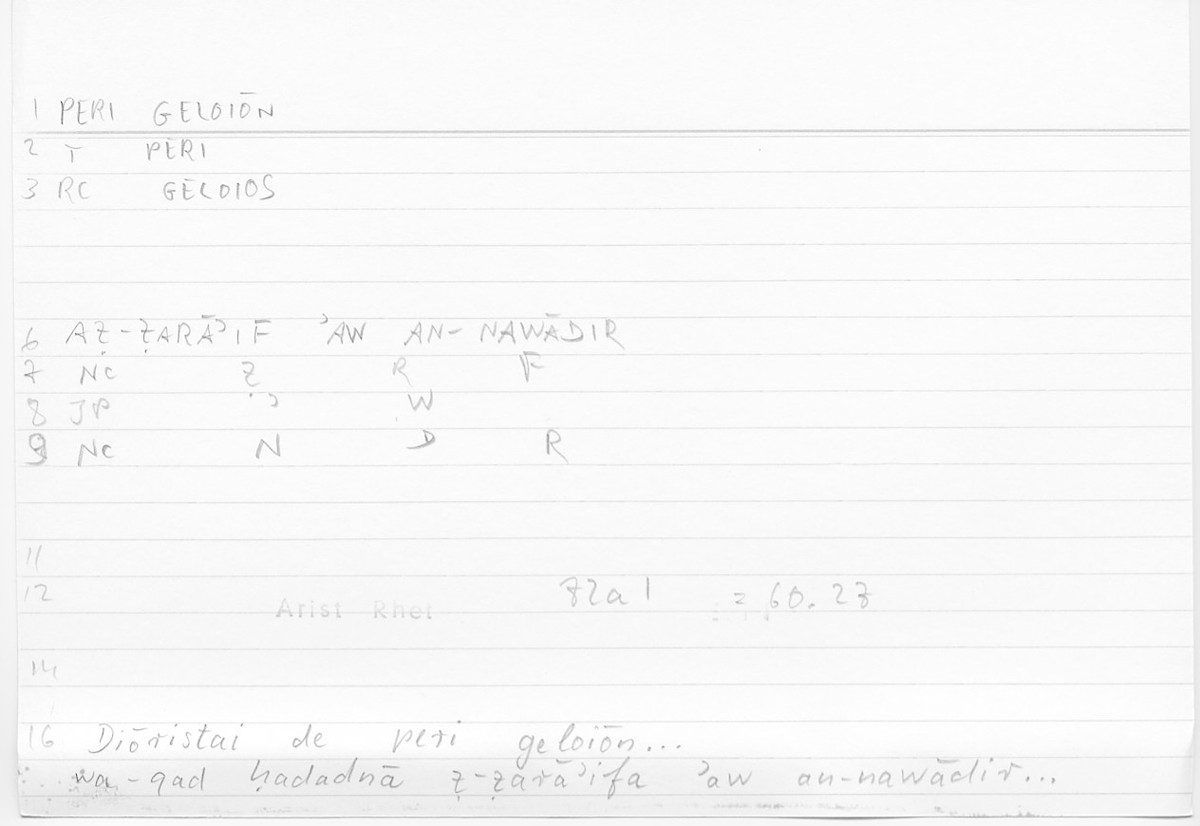 1 PERI GELOIŌN
2 T PERI
3 RC GELOIOS
6 AẒ-ẒARĀʾIF ʾAW AN-NAWĀDIR
7 NC Ẓ R F
8 JP ʾ W
9 NC N D R
11
12 Arist Rhet 72a1 = 60.27
14
16 Diōristai de peri geloiōn...
wa-qad ḥadadnā ẓ-ẓarāʾifa ʾaw an-nawādir...